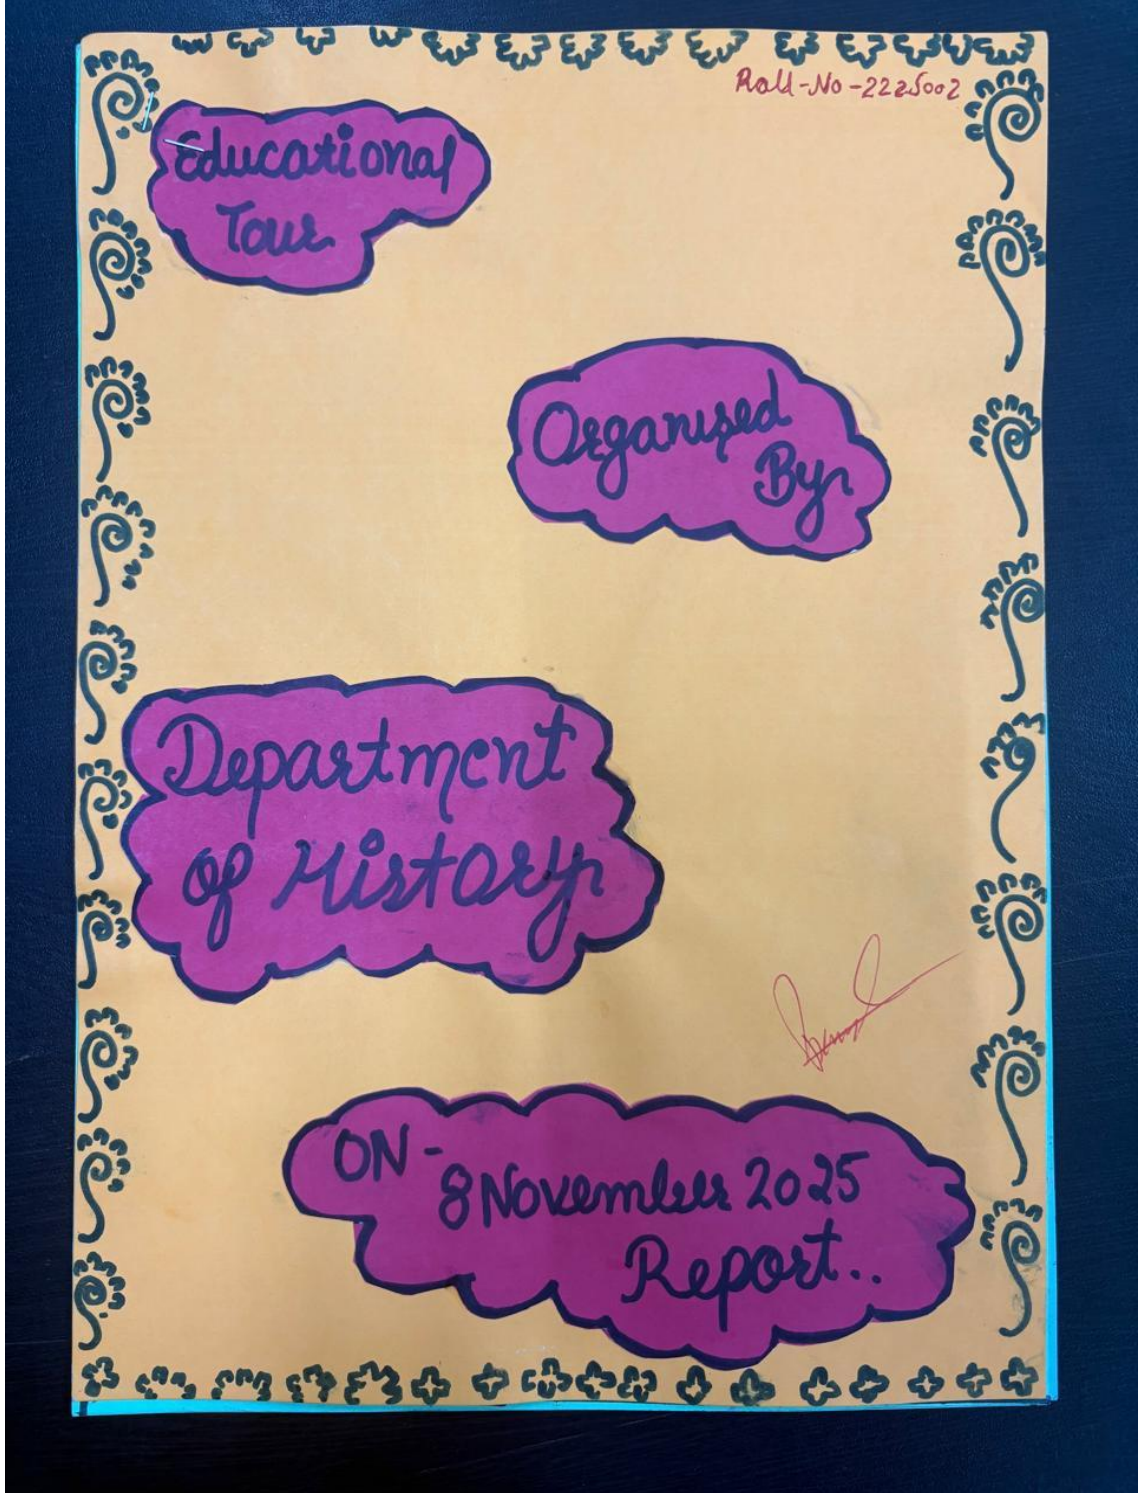 Roll-No-2225002
Educational
Tour
Organised
By
Department
of History
ON-
8 November 2025
Report..